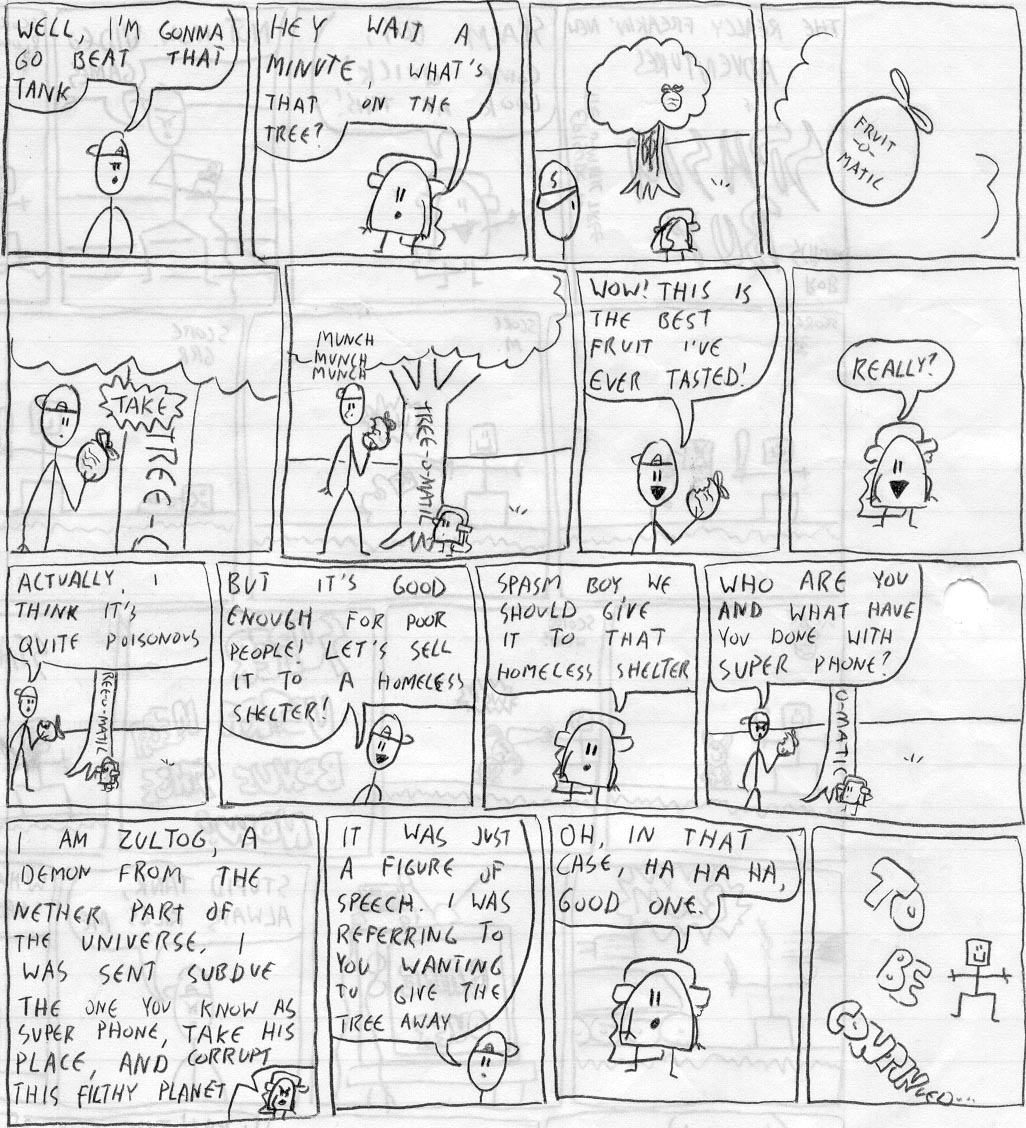 WELL, I'M GONNA
GO BEAT THAT
TANK
HEY WAIT A
MINUTE, WHAT'S
THAT ON THE
TREE?
FRUIT
-O-
MATIC
TAKE
TREE-O
MUNCH
MUNCH
MUNCH
TREE-O-MATIC
WOW! THIS IS
THE BEST
FRUIT I'VE
EVER TASTED!
REALLY?
ACTUALLY, I
THINK IT'S
QUITE POISONOUS
REE-O-MATIC
BUT IT'S GOOD
ENOUGH FOR POOR
PEOPLE! LET'S SELL
IT TO A HOMELESS
SHELTER!
SPASM BOY, WE
SHOULD GIVE
IT TO THAT
HOMELESS SHELTER
WHO ARE YOU
AND WHAT HAVE
YOU DONE WITH
SUPER PHONE?
O-MATIC
I AM ZULTOG, A
DEMON FROM THE
NETHER PART OF
THE UNIVERSE. I
WAS SENT SUBDUE
THE ONE YOU KNOW AS
SUPER PHONE, TAKE HIS
PLACE, AND CORRUPT
THIS FILTHY PLANET
IT WAS JUST
A FIGURE OF
SPEECH. I WAS
REFERRING TO
YOU WANTING
TO GIVE THE
TREE AWAY
OH, IN THAT
CASE, HA HA HA,
GOOD ONE.
TO
BE
CONTINUED...